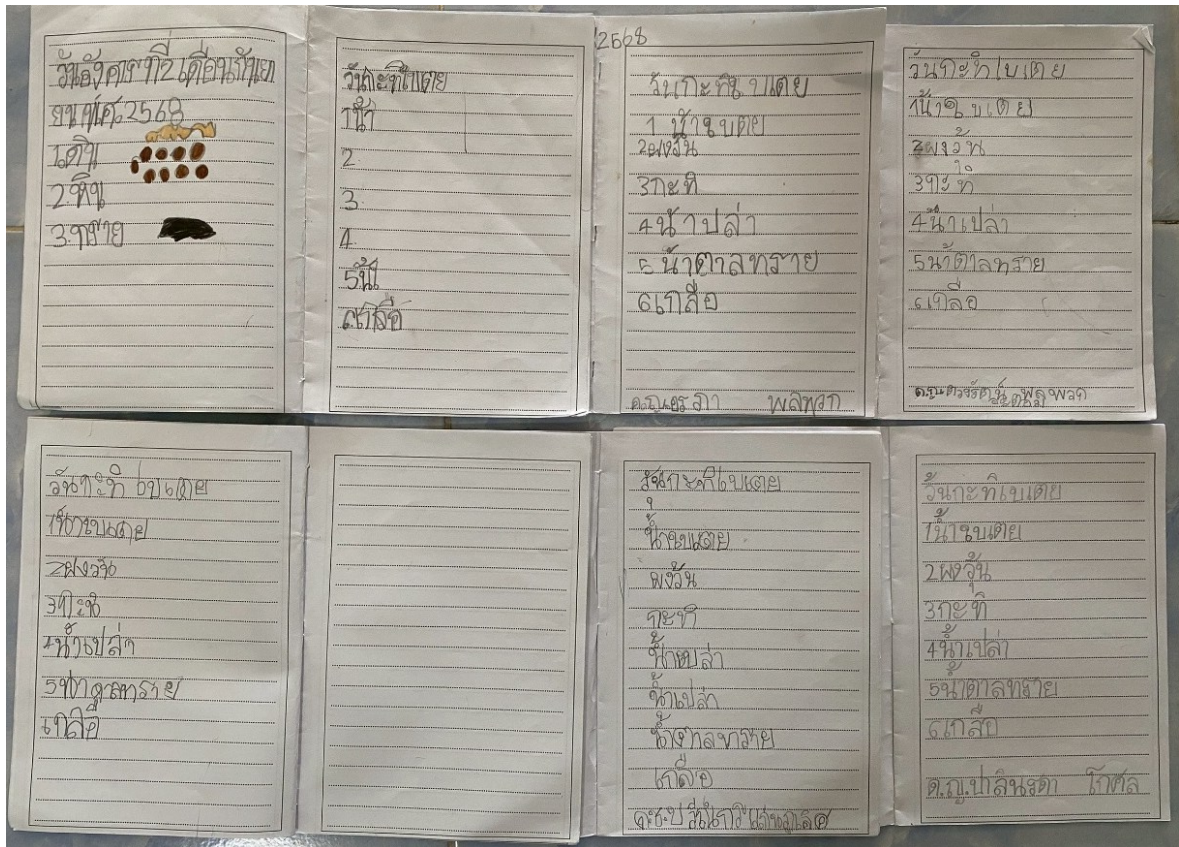 วันอังคารที่2 เดือนกันยา
ยน พ.ศ.2568
1.ดิน
2.หิน
3.ทราย
วันกะทิใบเตย
1น้ำ
2.
3.
4.
5นำ้
6.เกลือ
2568
วันกะทิใบเตย
1 น้ำใบเตย
2ผงวัน
3กะทิ
4น้ำปล่า
5 น้ำตาลทราย
6เกลือ
พลพวก
วันกะทิใบเตย
1น้ำใบเตย
2ผงวัน
3กะทิ
4น้ำเปล่า
5น้ำตาลทราย
6เกลือ
พลพวก
วันกะทิ ใบเตย
1น้ำใบเตย
2ผงวัน
3กะทิ
4น้ำเปล่า
5น้ำตาลทราย
เกลือ
วันกะทิใบเตย
น้ำใบเตย
ผงวัน
กะทิ
น้ำเปล่า
น้ำเปล่า
น้ำตาลทราย
เกลือ
วุ้นกะทิใบเตย
1น้ำใบเตย
2ผงวุ้น
3กะทิ
4น้ำเปล่า
5น้ำตาลทราย
6เกลือ
ด.ญ.ปาลินรดา โกศล